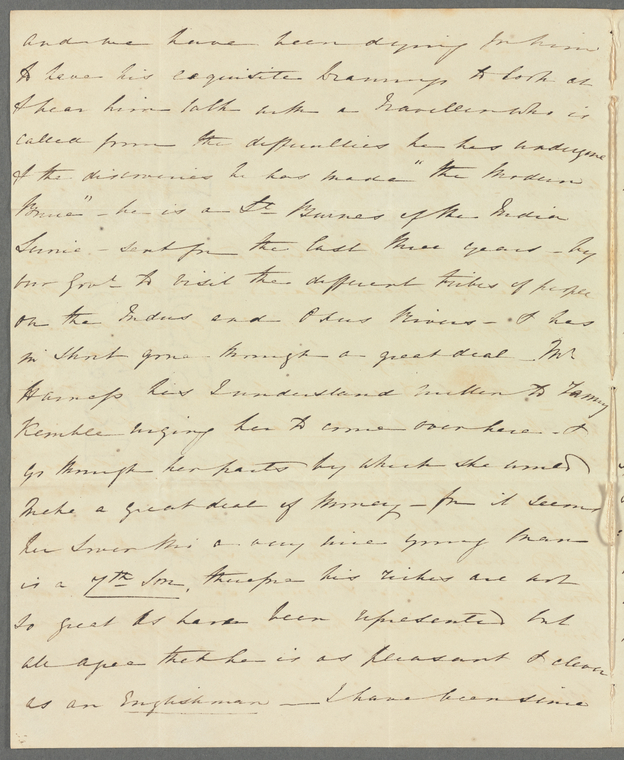 and we have been dying for him
& have his exquisite Drawings to look at
& hear him talk with a Traveller who is
called from the difficulties he has undergone
& the discoveries he has made "the Modern
Bruce" - he is a Lt. Burnes of the India
Service - sent for the last three years - by
our Govt. to visit the different tribes of people
on the Indus and Oxus Rivers - & has
in short gone through a great deal. Mr.
Harness has I understand written to Fanny
Kemble urging her to come over here - &
go through her parts by which she would
make a great deal of Money - for it seems
her Lover tho' a very nice young man
is a 7th Son, therefore his riches are not
so great as have been represented but
all agree that he is as pleasant & clever
as an Englishman — I have been since